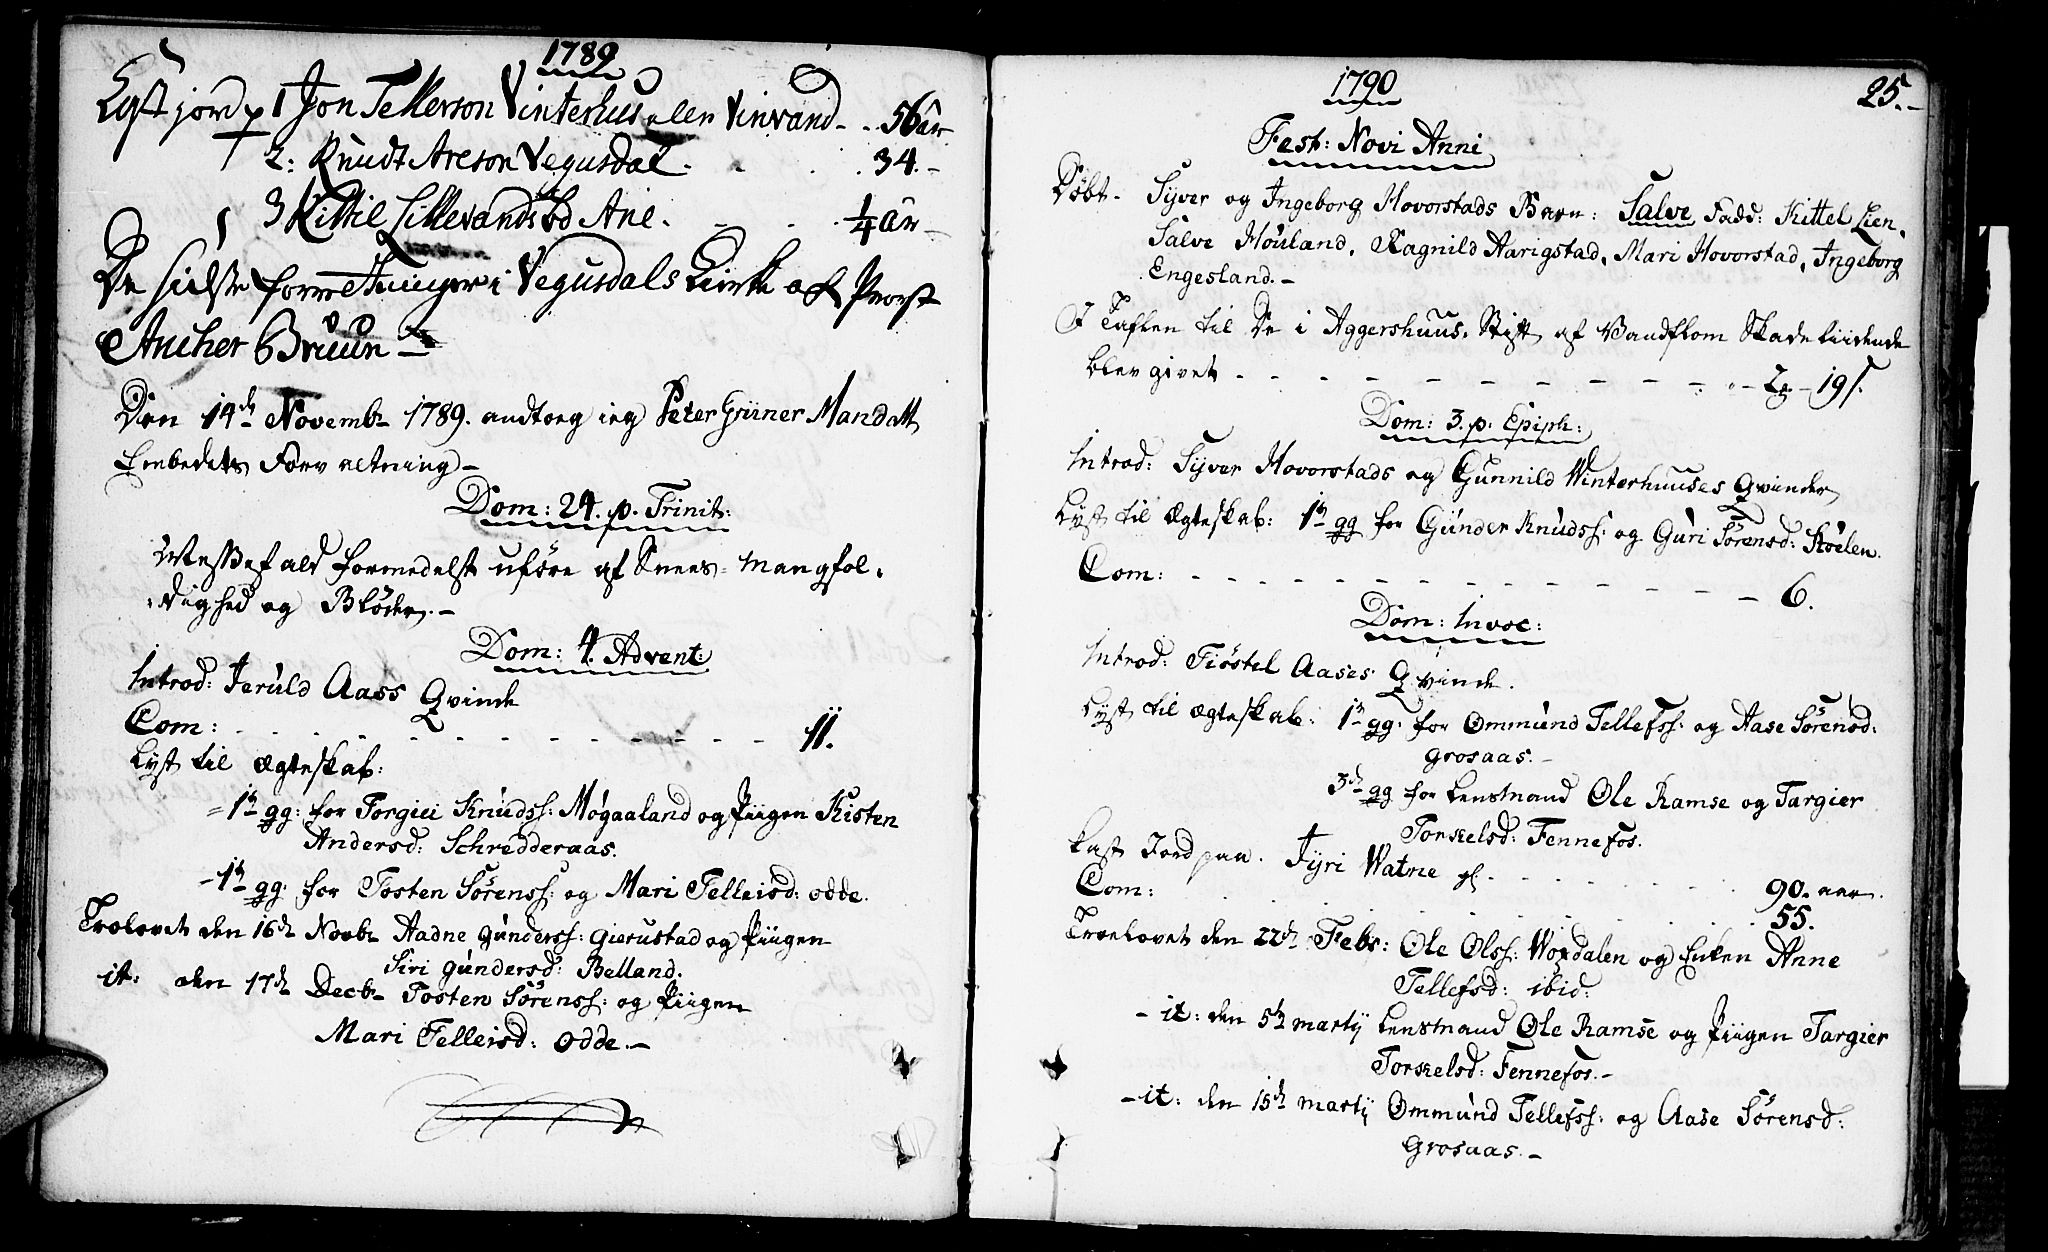 1789
Kast jord p 1 Jon Tellerson Vinterhus alen Vinvand - . 56 år
2: Knudt Areson Vegusdal. . . . 34. -
3 Kittil Lillevands Ane. - - . 1/4 år -
De sidste forretninger i Vegusdals Kirke af Provst
Ancher Bruun
Den 14de Novembr 1789. andtog ieg Peter Grüner Mandatt
Embedets Forvaltning -
Dom: 24. p. Trinit:
Messefald formedelst uføre af Snees- mangfol-
-dighed og Bløder. -
Dom: 4. Advent:
Introd: Jeruld Aass Qvinde
Com: - - - - - - - - - - - - - - 11.
Lyst til Ægteskab:
= 1te gg: for Torgiei Knudss: Møgaaland og Piigen Kisten
Andersd: Schredderaas.
- 1te gg: for Tosten Sørenss: og Mari Telleisd: Odde.
Trolovet den 16de Novbr Aadne Gunderss: Gierustad og Piigen
Siri Gundersd: Belland.
it: den 17de Decbr Tosten Sørenss: og Piigen
Mari Telleisd: Odde. -
1790
25. -
Fest: Novi Anni
Døbt - Syver og Ingeborg Hovorstads Barn: Salve Fadd: Kittel Lien,
Salve Houland, Ragnild Aarigstad, Mari Hovorstad, Ingeborg
Engesland. -
I Taflen til De i Aggershuus, Stift af Vandflom Skadeliidende
blev givet - - - - - - - - - - - 2 - 19 s.
Dom: 3. p. Epiph:
Introd: Syver Hovorstads og Gunnild Winterhuuses Qvinder
Lyst til Ægteskab: 1te gg for Gunder Knudss: og Guri Sørensd: Støelen.
Com: - - - - - - - - - - - - - 6.
Dom: Invoc:
Introd: Tiøstel Aases Qvinde.
Lyst til Ægteskab: 1te gg: for Ommund Tellefss: og Aase Sørensd:
Grosaas. -
3de gg for Lensmand Ole Ramse og Targier
Torkelsd: Fennefos.
Kast Jord paa. Jyri Watne gl. - - - - 90. aar.
Com: . . . . . . . . . . 55.
Troelovet den 22de Febr: Ole Olss: Wordalen og Enken Anne
Tellefsd: ibid:
- it: den 5te Martij Lensmand Ole Ramse og Piigen Targier
Torkelsd: Fennefos. -
- it: den 15de Martij Ommund Tellefss: og Aase Sørensd:
Grosaas. -